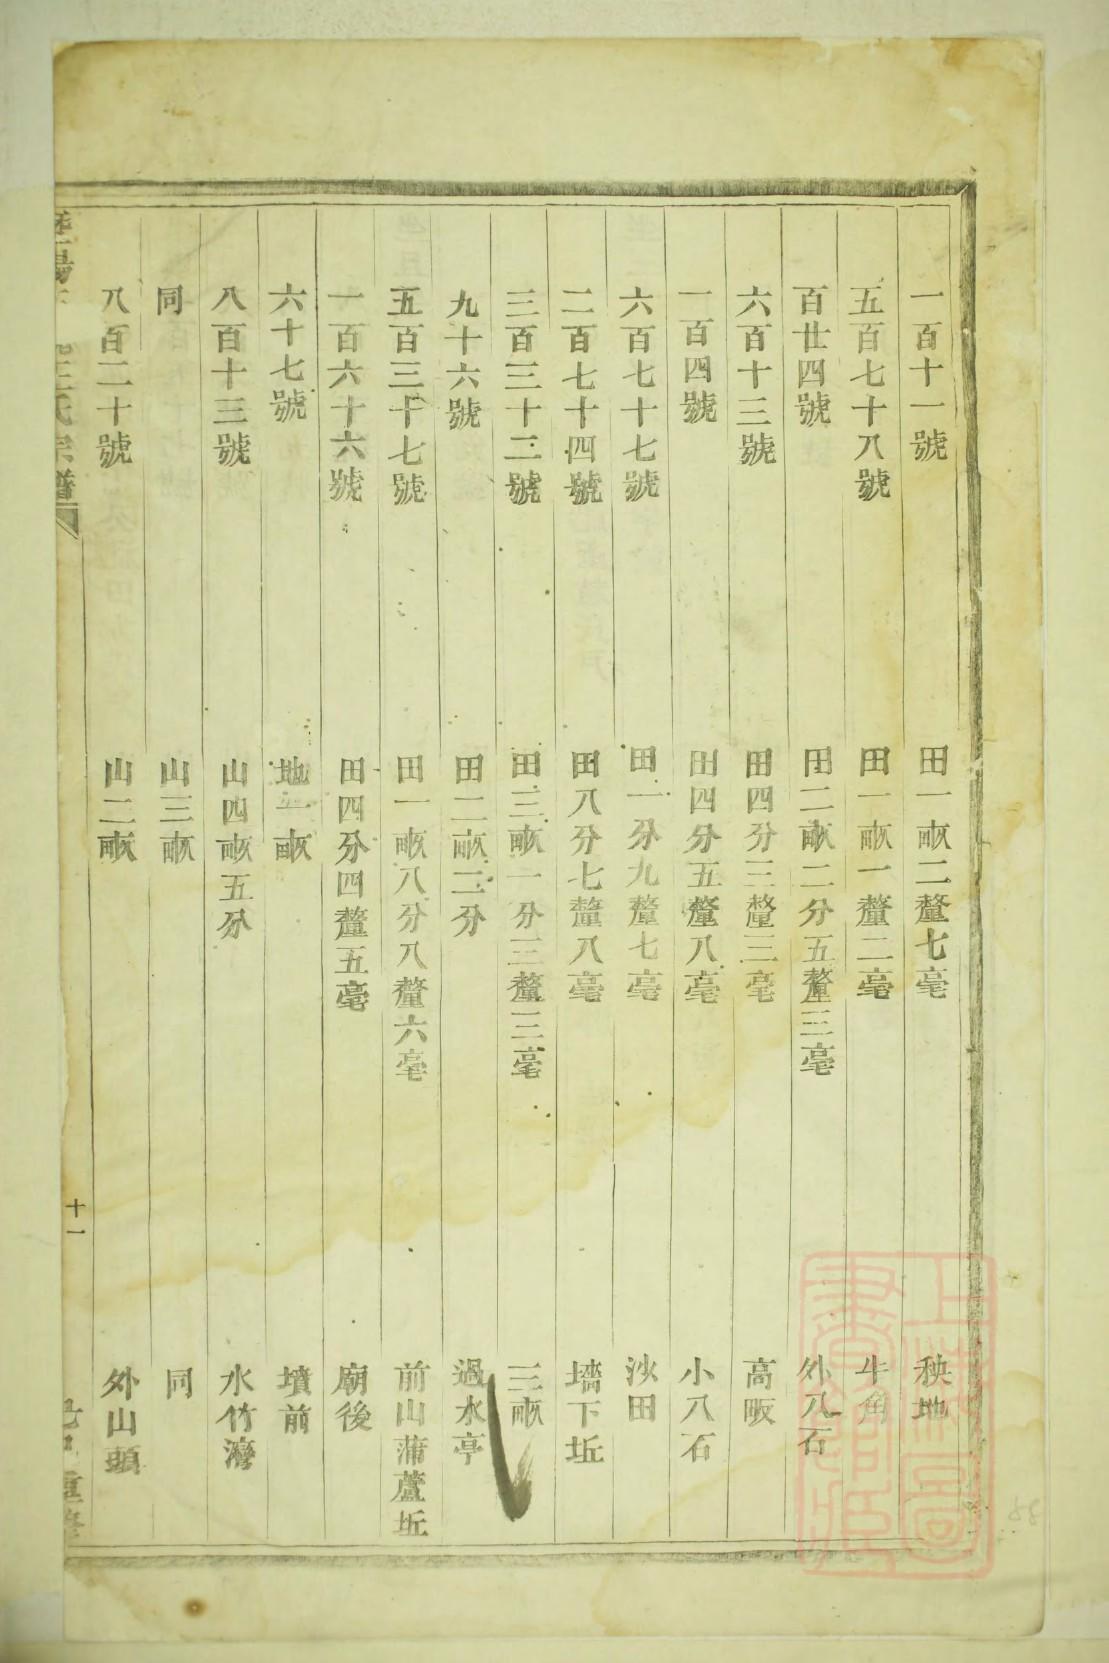 一百十一號 田一畝二釐七毫 秧地
五百七十八號 田一畝一釐二毫 牛角
百廿四號 田二畝二分五釐三毫 外八石
六百十三號 田四分三釐三毫 高畈
一百四號 田四分五釐八毫 小八石
六百七十七號 田一分九釐七毫 沙田
二百七十四號 田八分七釐八毫 墻下坵
三百三十二號 田三畝一分三釐三毫 三畝
九十六號 田二畝二分 過水亭
五百三十七號 田一畝八分八釐六毫 前山蒲蘆坵
一百六十六號 田四分四釐五毫 廟後
六十七號 地一畝 墳前
八百十三號 山四畝五分 水竹灣
同 山三畝 同
八百二十號 山二畝 外山頭
氏宗譜 十一 重修
上海圖書館藏